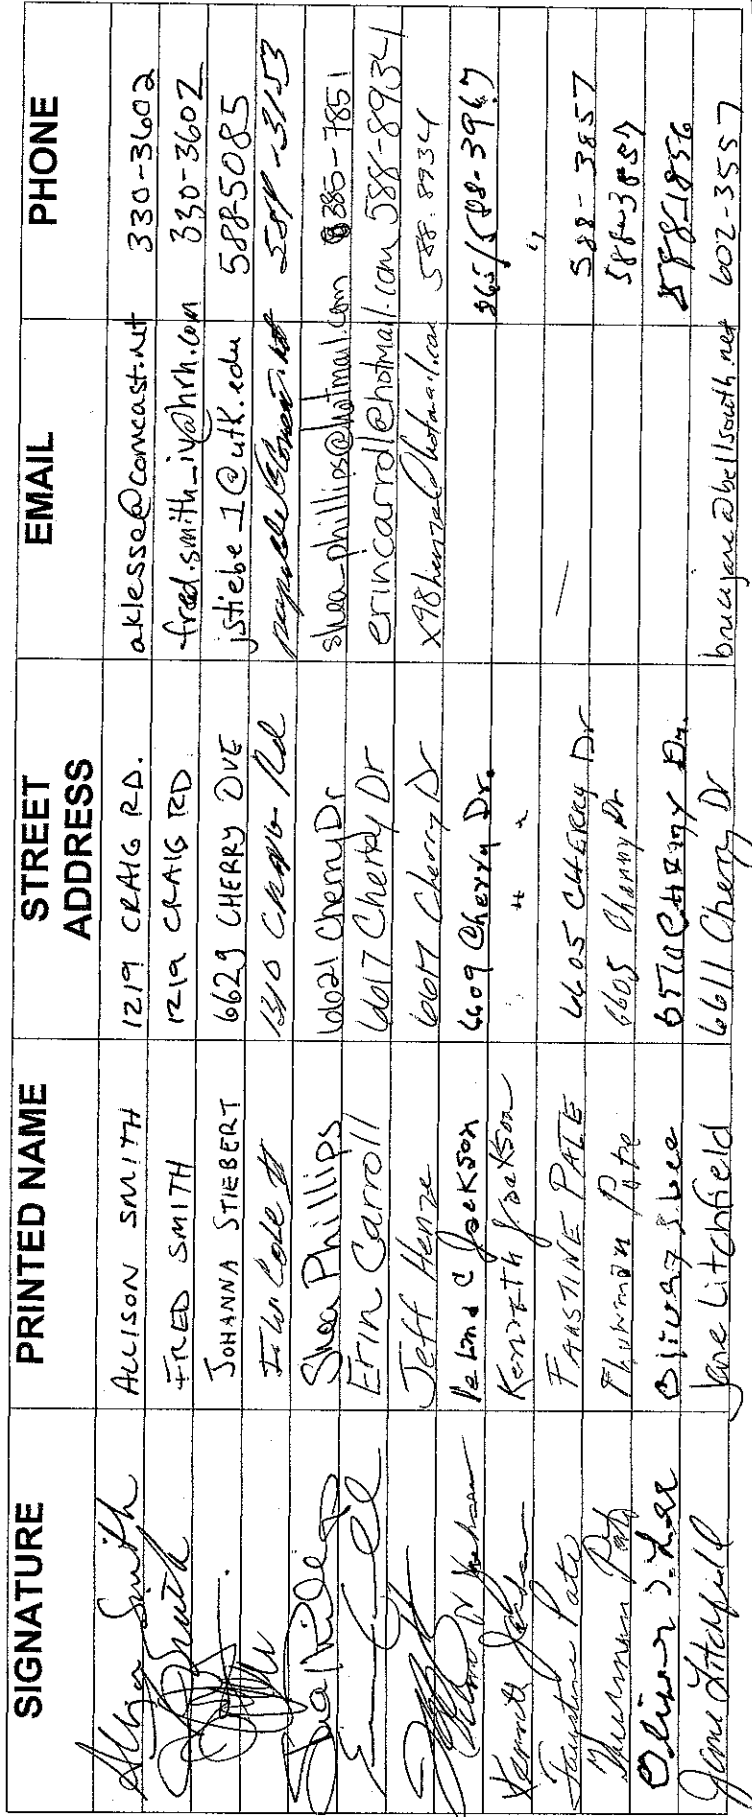 SIGNATURE PRINTED NAME STREET ADDRESS EMAIL PHONE
Allison Smith ALLISON SMITH 1219 CRAIG RD. aklesso@comcast.net 330-3602
Smith FRED SMITH 1219 CRAIG RD fred.smith_iv@hrh.com 330-3602
JOHANNA STIEBERT 6629 CHERRY DVE jstiebe_1@utk.edu 588-5085
1310 CRAIG Rd 584-3153
Shea Phillips Shea Phillips 6621 Cherry Dr shea_phillips@hotmail.com 385-7851
Erin Carroll 6617 Cherry Dr erincarroll@hotmail.com 588-8934
Jeff Henze 6617 Cherry Dr x98henze@hotmail.com 588-8934
C Jackson 6609 Cherry Dr. 865/588-3967
Kenneth Jackson Kenneth Jackson " " "
Faustine Pate FAUSTINE PATE 6605 CHERRY Dr — 588-3857
Thurman Pate Thurman Pate 6605 Cherry Dr 588-3857
Oliver S. Lee Oliver S. Lee CHERRY Dr. 588-1856
Jane Litchfield Jane Litchfield 6611 Cherry Dr brucejane@bellsouth.net 602-3557